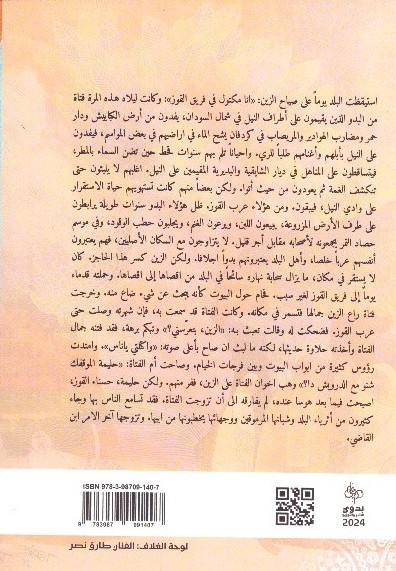 استيقظت البلد يوماً على صياح الزين: «انا مكتول في فريق القوز»؛ وكانت ليلاه هذه المرة فتاة
من البدو الذين يقيمون على أطراف النيل في شمال السودان، يفدون من أرض الكبابيش ودار
حمر ومضارب الهواوير والمريصاب في كردفان يشح الماء في اراضيهم في بعض المواسم، فيفدون
على النيل بأبلهم وأغنامهم طلباً للري. واحيانا تلم بهم سنوات قحط حين تضن السماء بالمطر،
فيتساقطون على المناهل في ديار الشايقية والبديرية المقيمين على النيل. اغلبهم لا يلبثون حتى
تنكشف الغمة ثم يعودون من حيث أتوا. ولكن بعضا منهم كانت تستهويهم حياة الاستقرار
على وادي النيل، فيبقون. ومن هؤلاء عرب القوز. ظل هؤلاء البدو سنوات طويلة يرابطون
على طرف الأرض المزروعة، يبيعون اللبن، ويرعون الغنم، ويجلبون حطب الوقود، وفي موسم
حصاد التمر يجمعونه لأصحابه مقابل أجر قليل. لا يتزاوجون مع السكان الأصليين، فهم يعتبرون
أنفسهم عربا خلصا، وأهل البلد يعتبرونهم بدوا أجلافا. ولكن الزين كسر هذا الحاجز. كان
لا يستقر في مكان، ما يزال سحابة نهاره سائحا في البلد من اقصاها إلى اقصاها. وحملته قدماه
يوماً إلى فريق القوز لغير سبب. فحام حول البيوت كأنه يبحث عن شيء ضاع منه. وخرجت
فتاة راع الزين جمالها فتسمر في مكانه. وكانت الفتاة قد سمعت به، فإن شهرته وصلت حتى
عرب القوز. فضحكت له وقالت تعبث به: «الزين، بتعرّسني؟» وتبكم برهة، فقد فتنه جمال
الفتاة وأخذته حلاوة حديثها، لكنه ما لبث ان صاح بأعلى صوته: «واكتلتي ياناس». وامتدت
رؤوس كثيرة من ابواب البيوت وبين فرجات الخيام. وصاحت أم الفتاة: «حليمة الموقفك
شنو مع الدرويش دا؟» وهب اخوان الفتاة على الزين، ففر منهم. ولكن حليمة، حسناء القوز،
اصبحت فيما بعد هوسا عنده، لم يفارقه الى أن تزوجت الفتاة. فقد تسامع الناس بها وجاء
كثيرون من أثرياء البلد وشبانها المرموقين ووجهائها يخطبونها من ابيها. وتزوجها آخر الامر ابن
القاضي.
ISBN 978-3-98709-140-7
9 783987 091407
بدوي
2024
لوحة الغلاف: الفنان طارق نصر